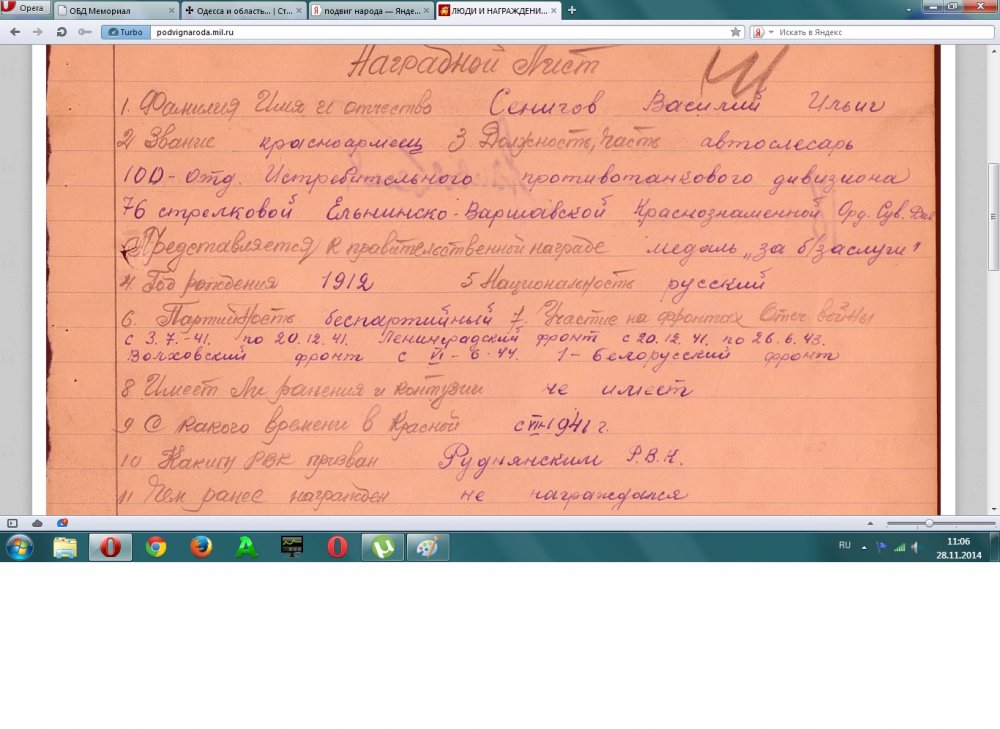 Opera
ОБД Мемориал
Одесса и область... | Ст...
подвиг народа — Янде...
ЛЮДИ И НАГРАЖДЕНИ...
Turbo
podvignaroda.mil.ru
Искать в Яндекс
Наградной Лист
1. Фамилия Имя и отчество Сенигов Василий Ильич
2 Звание красноармеец 3 Должность, часть автослесарь
100 - отд. Истребительного противотанкового дивизиона
76 стрелковой Ельнинско-Варшавской Краснознаменной Орд. Сув. Див
Представляется к правителсственной награде медаль „за б/заслуги"
4. Год рождения 1912 5 Национальность русский
6. Партийность беспартийный 7. Участие на фронтах Отеч. войны
с 3.7.-41. по 20.12.41. Ленинградский фронт с 20.12.41. по 26.6.43.
Волховский фронт с VI - 6-44. 1-Белорусский фронт
8 Имеет Ли ранения и контузии не имеет
9 С какого времени в Красной с VII-1941 г.
10 Каким РВК призван Руднянским Р.В.К.
11 Чем ранее награжден не награждался
RU
11:06
28.11.2014